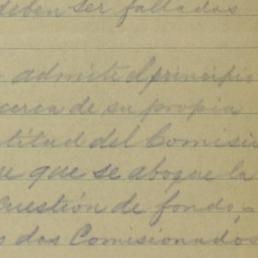 deben ser fallados
admite el principio
acerca de su propia
titud del Comisi
ue que se abogue la
cuestión de fondo.
s dos Comisionados